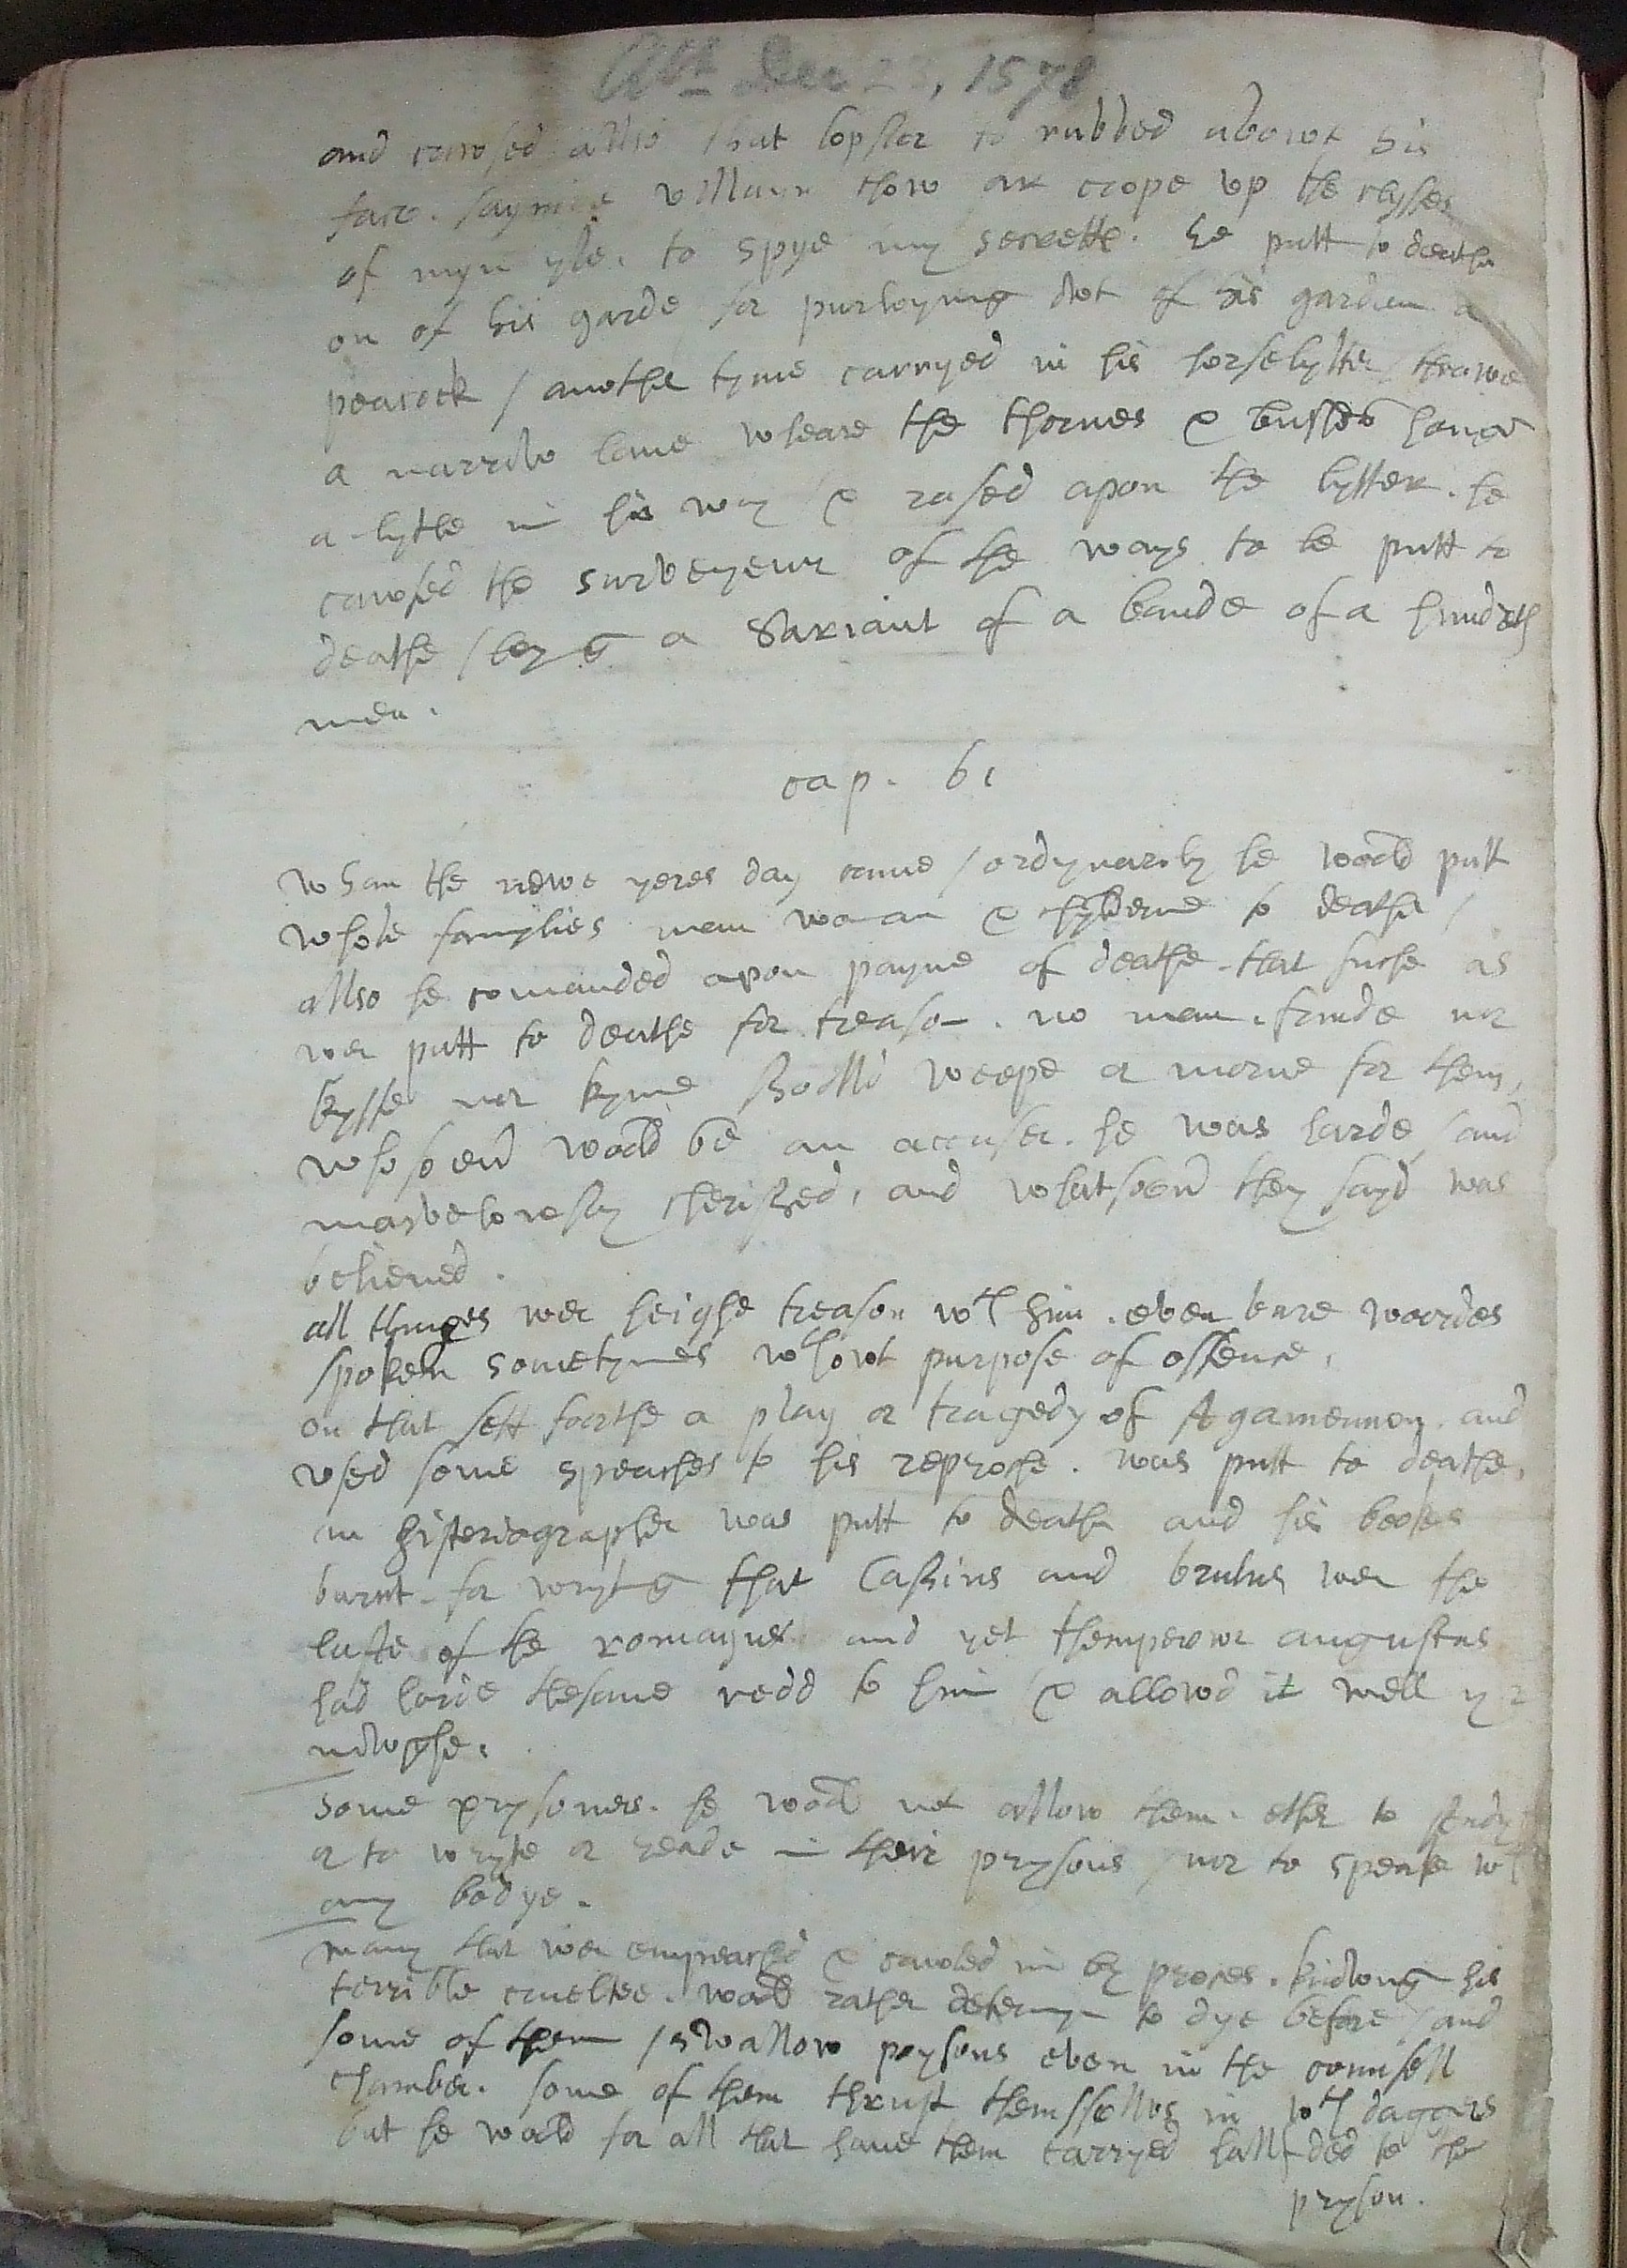 Dec 23, 1578
and cawsed allso that lopster to rubbed abowt his
face. sayinge villayn thow art crope vp the clysses
of myn yle. to spye my secrette. he putt to deathe
on of his garde for purloynīg owt of his garden a
peacock / another tyme carryed in his horselytter / thrawe
a narrow lane wheare the thornes & busshes hanged
a lytle in his way & rased apon the lytter. he
cawsed the surveyeur of the ways to be putt to
deathe / beyīg a Sariaut of a bande of a hundreth
men.
cap. 61
Whan the newe yeres day came / ordynarily he woold putt
whole famylies man woman & chylderne to deathe /
allso he comanded apon payne of deathe that suche as
wer putt to deathe for treason. no man. frinde nor
kysse nor kynne shollid weepe or morne for them,
whosoever woold be an accuser. he was harde / and
marvelowsly cherished, and whatsoever they sayd was
believed.
all thinges wer heighe treason wth him. even bare woordes
spoken sometymes wthowt purpose of offence,
on that sett foorthe a play or tragedy of Agamemnon. and
vsed some speaches to his reproche. was putt to deathe,
an historiographer was putt to deathe and his bookes
burnt. for wrytīg that Cassius and brutus wer the
laste of the romaynes and yet themperowr augustus
had harde thesame redd to him & allowd it well
inowghe.
Some prysoners. he woold not allow them. ether to study
or to wryte or reade in their prysons / nor to speake wth
any bodye.
many that wer empeached & cawled in by proces. knowing his
terrible crueltee. woold rather determyn to dye before / and
some of them / swallow poysons even in the counsell
chamber. some of them thrust themsellves in wth daggers
but he woold for all that have them carryed half ded to the
pryson.